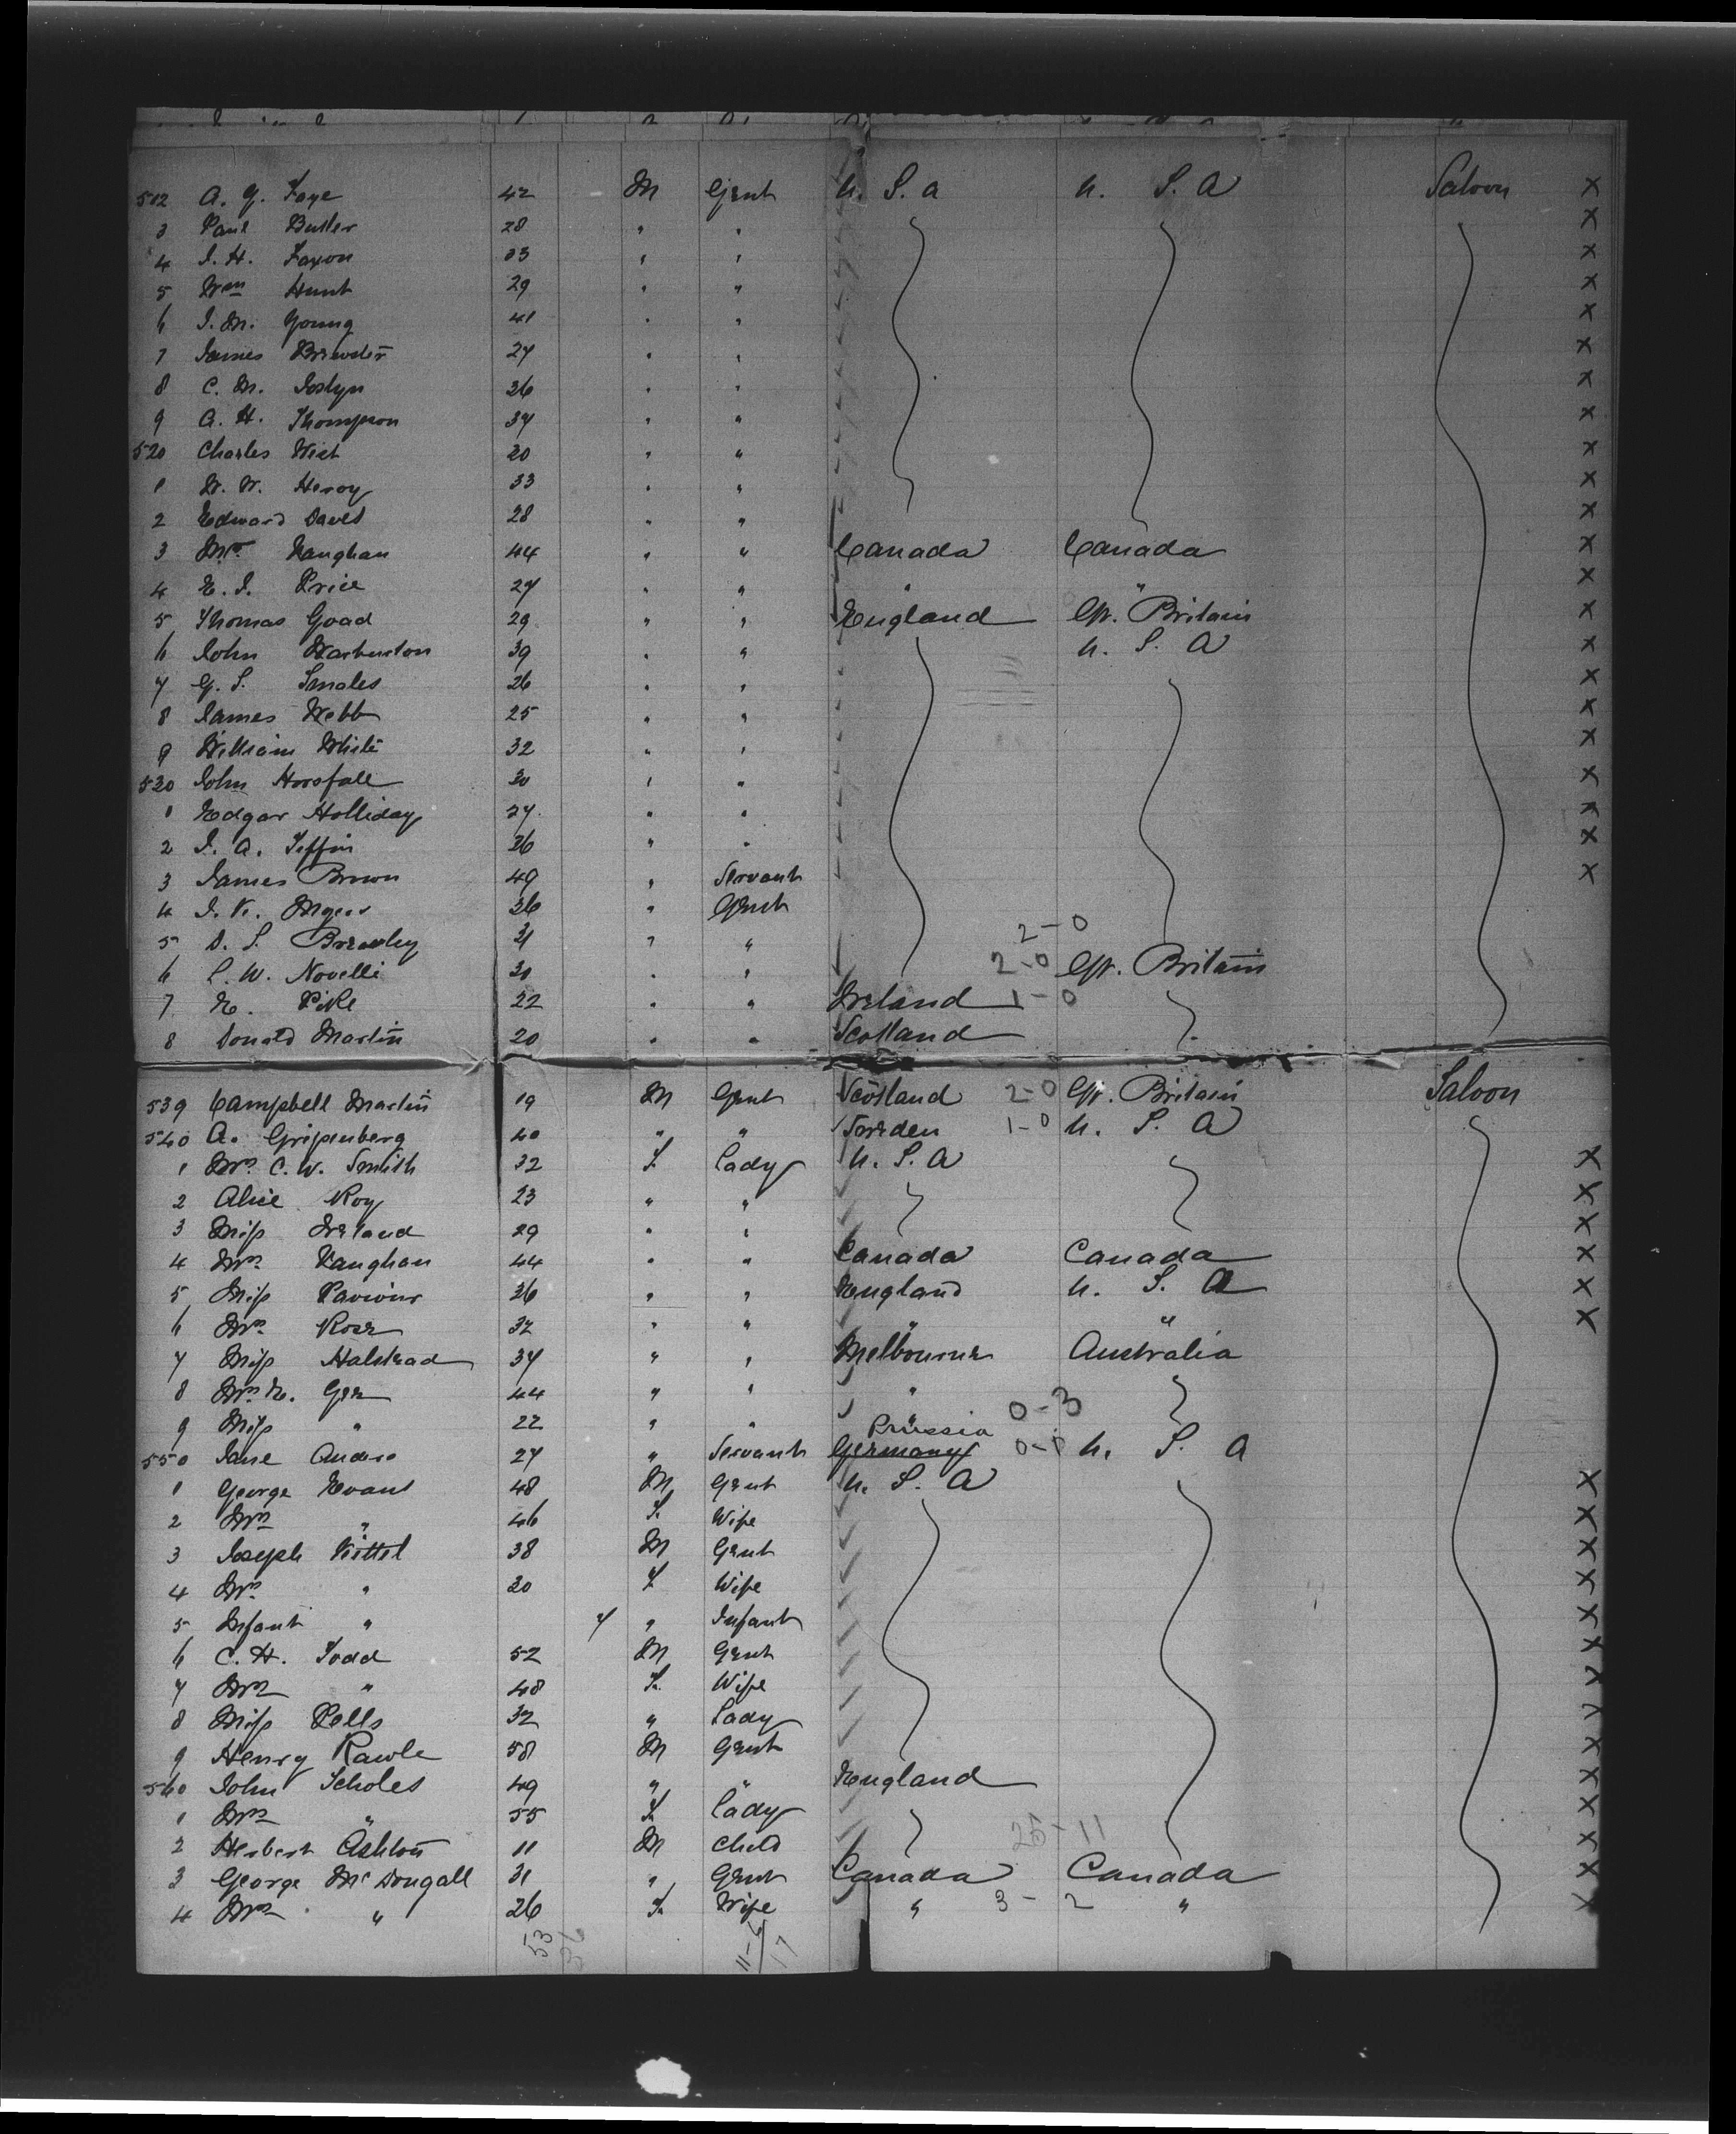 512 A. G. Faye 42 M Gent U. S. A U. S. A Saloon X
3 Paul Butler 28 " " X
4 J. H. Faxon 33 " " X
5 Wm Hunt 29 " " X
6 J. M. Young 41 " " X
7 James Brewster 27 " " X
8 C. M. Joslyn 36 " " X
9 A. H. Thompson 37 " " X
520 Charles West 20 " " X
1 W. W. Heroy 33 " " X
2 Edward Daves 28 " " X
3 Mr Vaughan 44 " " Canada Canada X
4 E. J. Price 27 " " " " X
5 Thomas Goad 29 " " England Gr. Britain X
6 John Warburton 39 " " U. S. A X
7 G. S. Smales 26 " " X
8 James Webb 25 " " X
9 William White 32 " " X
530 John Horsfall 30 " " X
1 Edgar Holliday 27 " " X
2 J. A. Tiffin 36 " " X
3 James Brown 49 " Servant X
4 J. V. Myers 36 " Gent
5 D. S. 31 " " 2-0
6 L. W. Novelli 30 " " 2-0 Gr. Britain
7 E. Pike 22 " " Ireland 1-0
8 Donald Martin 20 " " Scotland
539 Campbell Martin 19 M Gent Scotland 2-0 Gr. Britain Saloon
540 A. Gripenberg 40 " " Sweden 1-0 U. S. A
1 Mrs C. W. Smith 32 F. Lady U. S. A X
2 Alice Roy 23 " " X
3 Miss Ireland 29 " " X
4 Mrs Vaughan 44 " " Canada Canada X
5 Miss Paviour 36 " " England U. S. A X
6 Mrs Rose 32 " " " " X
7 Miss Halstead 37 " " Melbourne Australia
8 Mrs E. Gee 44 " " "
9 Miss " 22 " " " 0-3
Prussia
550 Jane Andero 27 " Servant Germany 0-0 U. S. A
1 George Evans 48 M Gent U. S. A X
2 Mrs " 46 F. Wife X
3 Joseph Kittel 38 M Gent X
4 Mrs " 30 F Wife X
5 Infant " 7 " Infant X
6 C. H. Todd 52 M Gent X
7 Mrs " 48 F. Wife X
8 Miss Pells 32 " Lady X
9 Henry Rawle 58 M Gent X
560 John Scholes 49 " " England X
1 Mrs " 55 F Lady X
2 Herbert Ashton 11 M Child 25-11 X
3 George McDougall 31 " Gent Canada Canada X
4 Mrs " 26 F. Wife " 3-2 " X
53 36 11-6/17